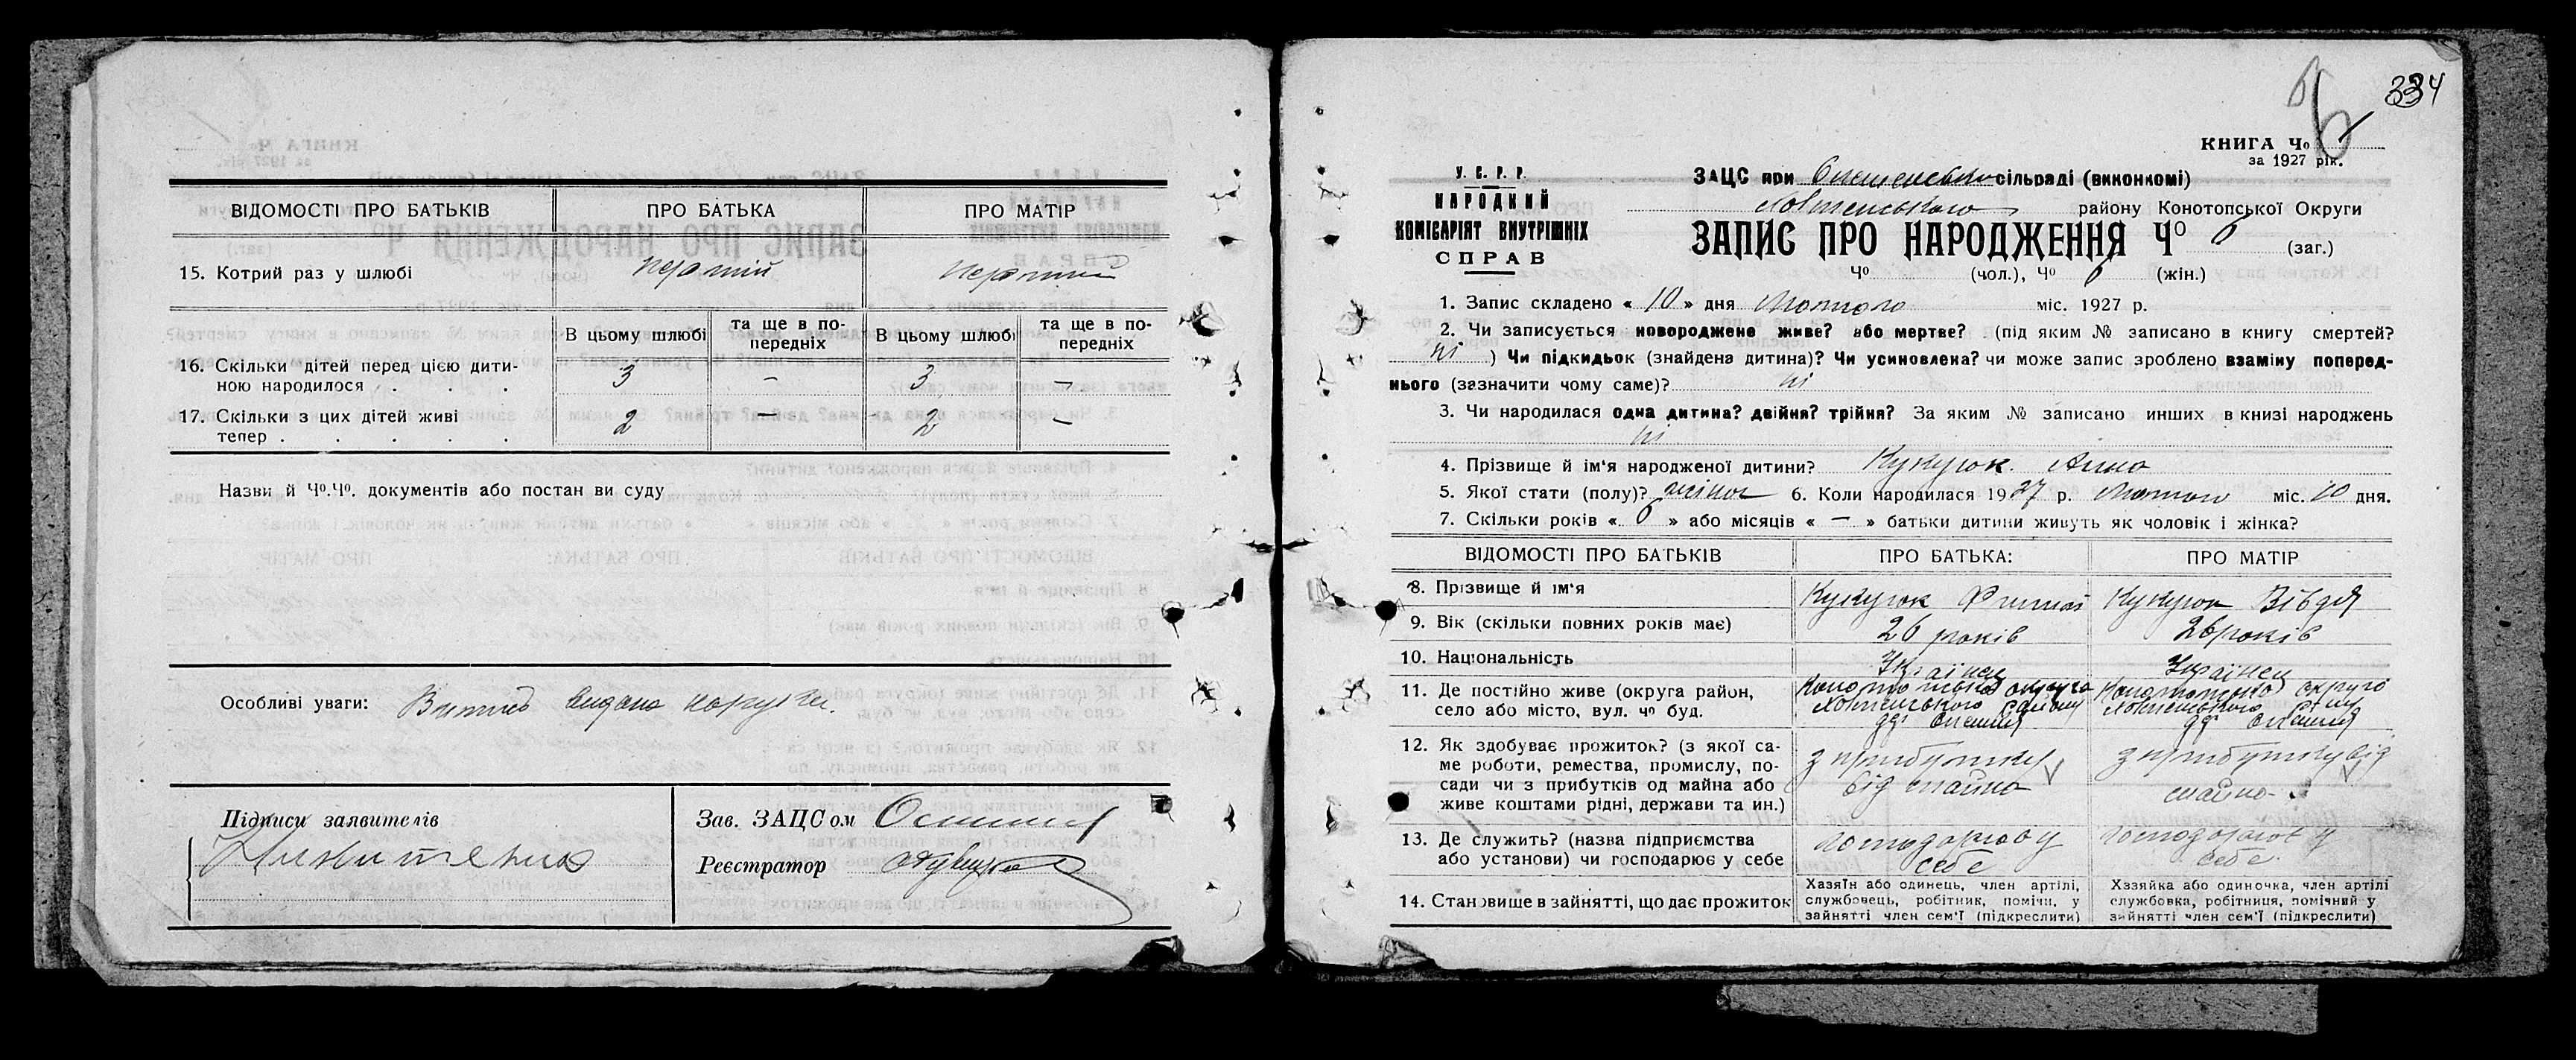 ВІДОМОСТІ ПРО БАТЬКІВ ПРО БАТЬКА ПРО МАТІР
15. Котрий раз у шлюбі перший перший
В цьому шлюбі та ще в по-передніх В цьому шлюбі та ще в по-передніх
16. Скільки дітей перед цією дити-
ною народилося . . . 3 — 3 —
17. Скільки з цих дітей живі
тепер . . . . . 2 — 2 —
Назви й Чо.Чо. документів або постан ви суду
Особливі уваги: видано
Підписи заявителів
Зав. ЗАЦСом
Реєстратор
334
6
КНИГА Чо
за 1927 рік.
У. С. Р. Р.
НАРОДНИЙ
КОМІСАРІЯТ ВНУТРІШНІХ
СПРАВ
ЗАЦС при сільраді (виконкомі)
району Конотопської Округи
ЗАПИС ПРО НАРОДЖЕННЯ Чо 6 (заг.)
Чо (чол.), Чо 6 (жін.)
1. Запис складено « 10 » дня Лютого міс. 1927 р.
2. Чи записується новороджене живе? або мертве? (під яким № записано в книгу смертей?
ні ) Чи підкидьок (знайдена дитина)? Чи усиновлена? чи може запис зроблено взаміну поперед-
нього (зазначити чому саме)? ні
3. Чи народилася одна дитина? двійня? трійня? За яким № записано инших в книзі народжень
ні
4. Прізвище й ім'я народженої дитини? Кукурок Анна
5. Якої стати (полу)? жіноч 6. Коли народилася 1927 р. Лютого міс. 10 дня.
7. Скільки років « 6 » або місяців « — » батьки дитини живуть як чоловік і жінка?
ВІДОМОСТІ ПРО БАТЬКІВ ПРО БАТЬКА: ПРО МАТІР
8. Прізвище й ім'я Кукурок Кукурок Вівдя
9. Вік (скільки повних років має) 26 років 26 років
10. Національність Українец Українец
11. Де постійно живе (округа район,
село або місто, вул. чо буд. Конотопська округа Конотопська округа
12. Як здобуває прожиток? (з якої са-
ме роботи, ремества, промислу, по-
сади чи з прибутків од майна або
живе коштами рідні, держави та ин.) з прибутку від майна з прибутку від майна
13. Де служить? (назва підприємства
або установи) чи господарює у себе господарює у себе господарює у себе
14. Становище в зайнятті, що дає прожиток
Хазяїн або одинець, член артілі,
службовець, робітник, помічн. у
зайнятті член сем'ї (підкреслити)
Хазяйка або одиночка, член артілі
службовка, робітниця, помічний у
зайнятті член сем'ї (підкреслити)